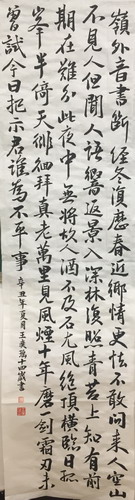 嶺外音書斷經冬復歷春近鄉情更怯不敢問來人空山
不見人但聞人語響返景入深林復照青苔上知有前
期在難分此夜中無將故人酒不及石尤風絕頂橫臨日孤
峯半倚天徘徊拜真老萬里見風煙十年磨一劍霜刃未
曾試今日把示君誰為不平事 辛丑年夏月王十四歲書